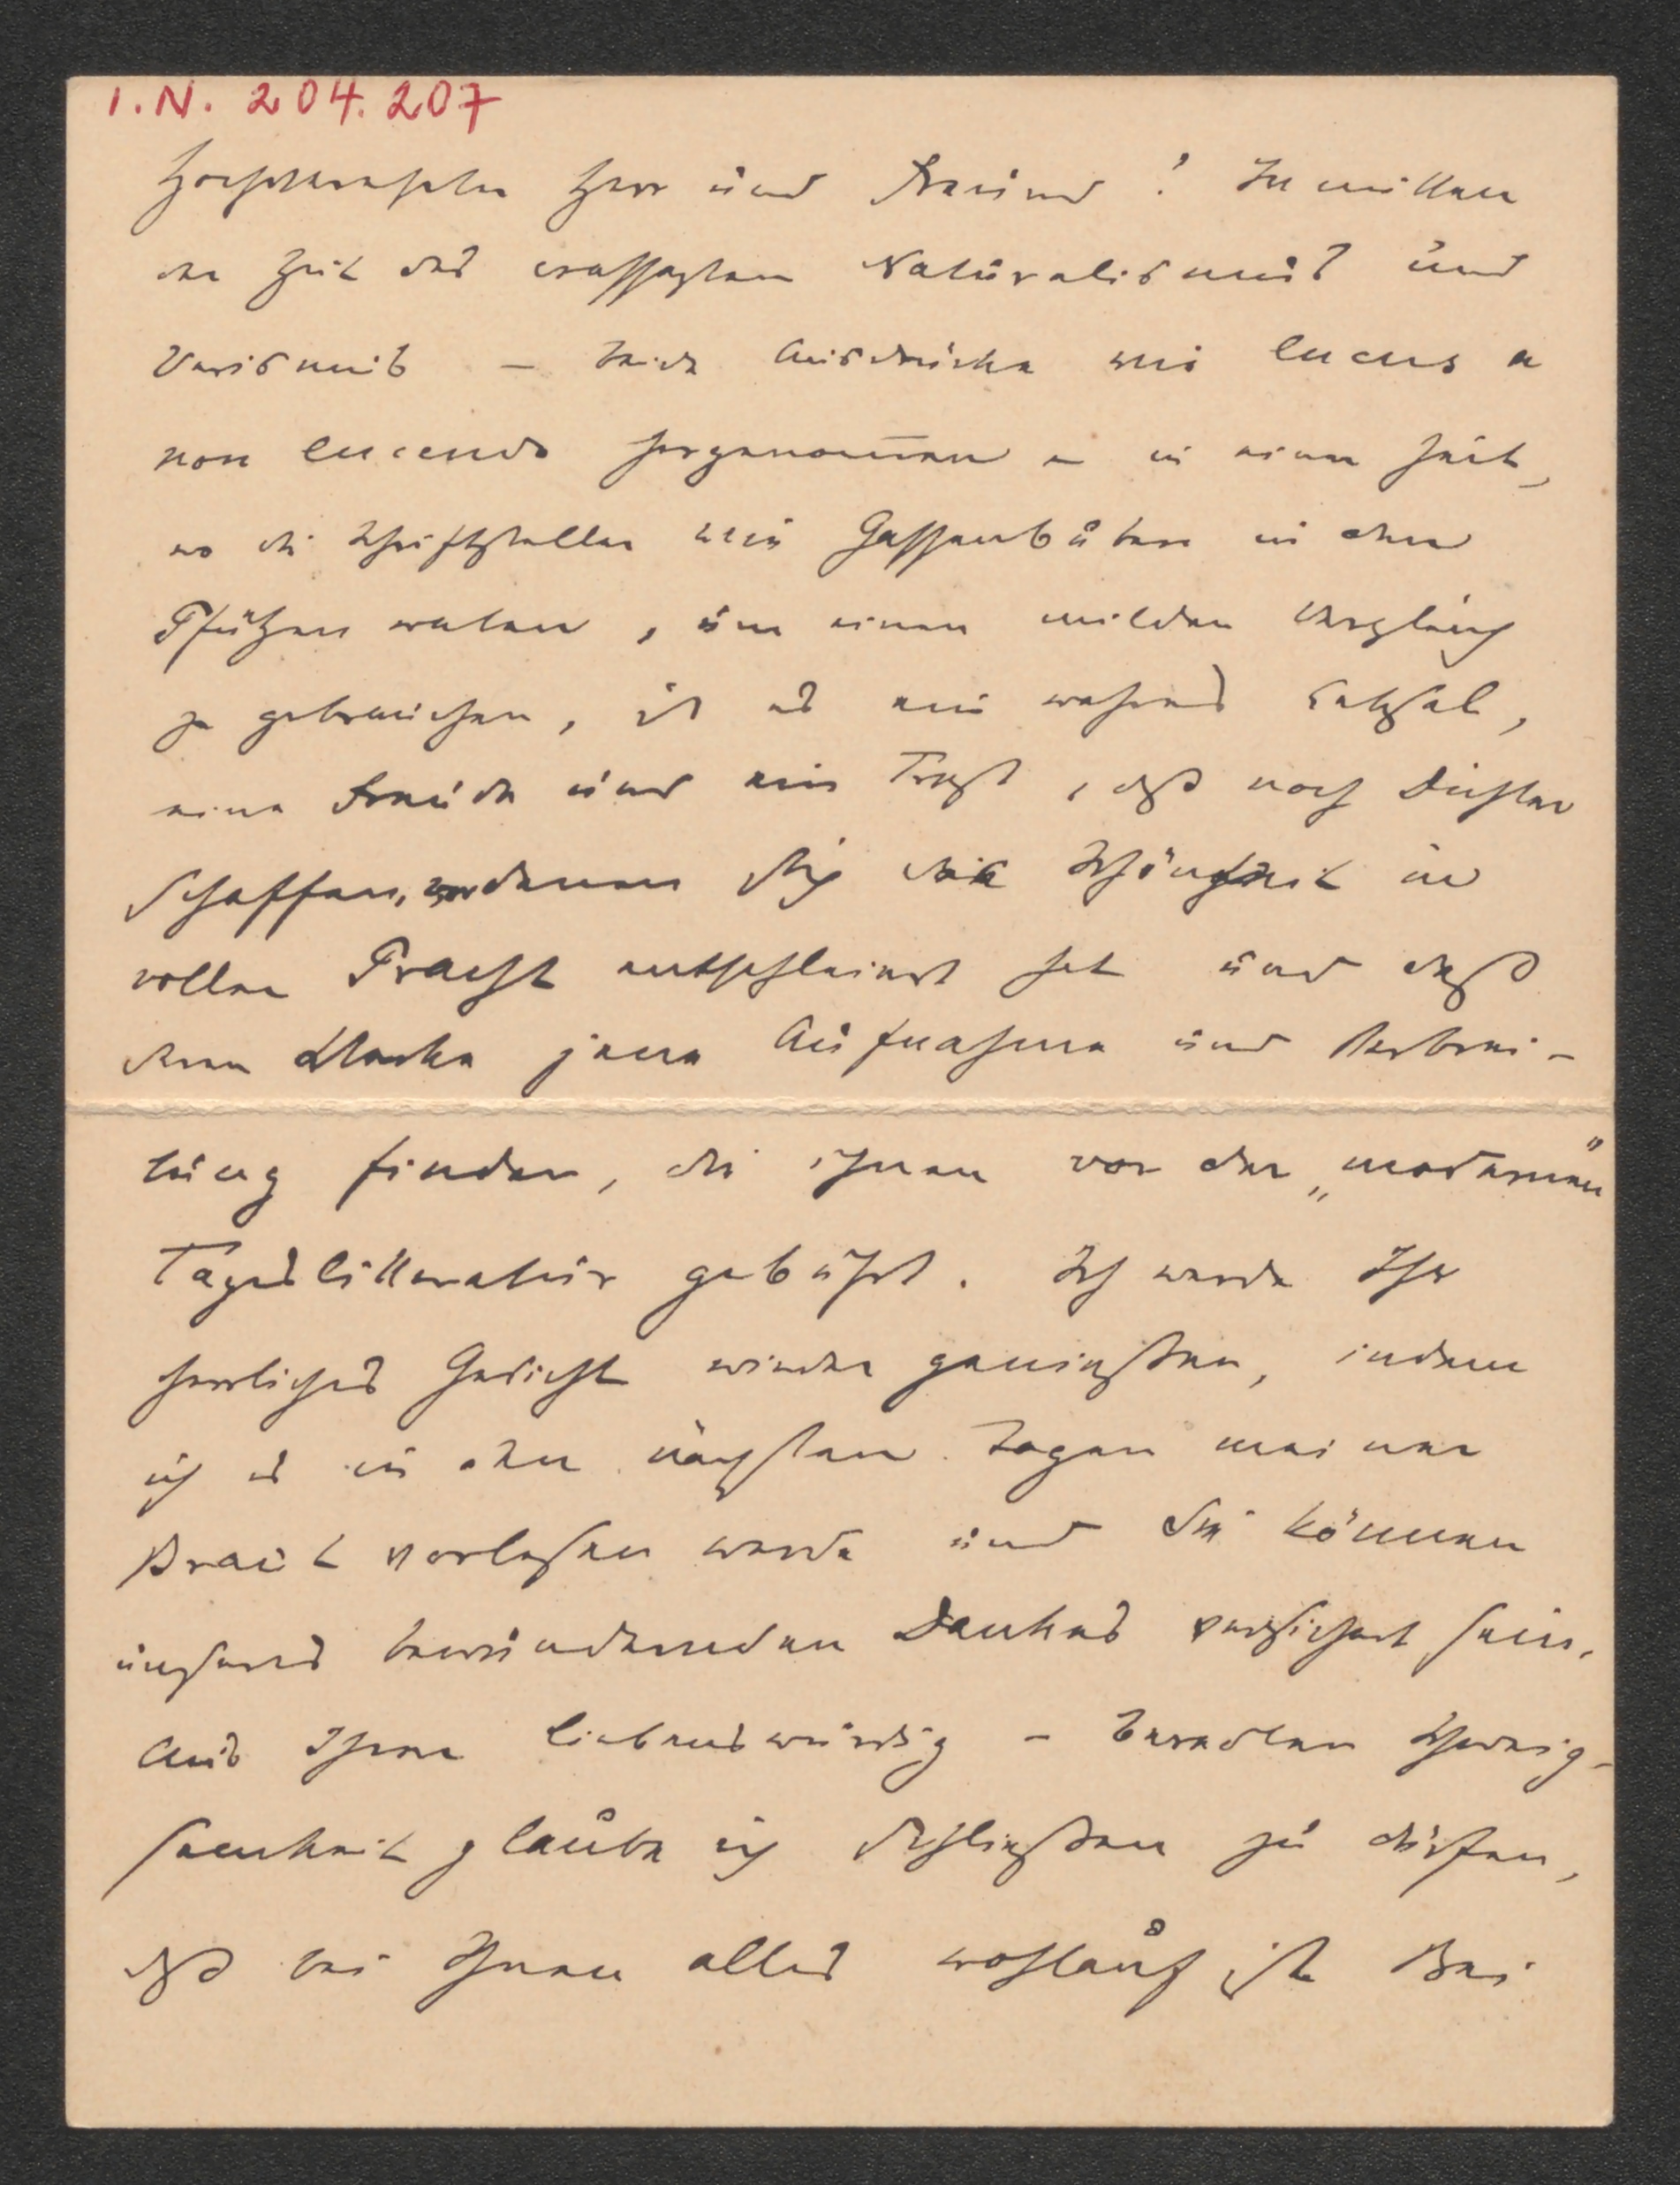 I.N. 204.207
Hochverehrter Herr und Freund! Inmitten
der Zeit des crassesten Naturalismus und
Verismus – beide Ausdrücke wie lucus a
non lucendo hergenom̅en – in einer Zeit,
wo die Schriftsteller wie Gassenbuben in den
Pfützen waten, um einen milden Vergleich
zu gebrauchen, ist es ein wahres Labsal,
eine Freude und ein Trost, daß noch Dichter
schaffen, vor denen sich die Schönheit in
voller Pracht entschleiert hat und daß
deren Werke jene Aufnahme und Verbrei-
tung finden, die ihnen vor der „modernen“
Tageslitteratur gebührt. Ich werde Ihr
herrliches Gedicht wieder genießen, indem
ich es in den nächsten Tagen meiner
Braut vorlesen werde und Sie können
unseres bewundernden Dankes versichert sein.
Aus Ihrer liebenswürdig – beredten Schweig-
samkeit glaube ich schließen zu dürfen,
daß bei Ihnen alles wohlauf ist. Bei